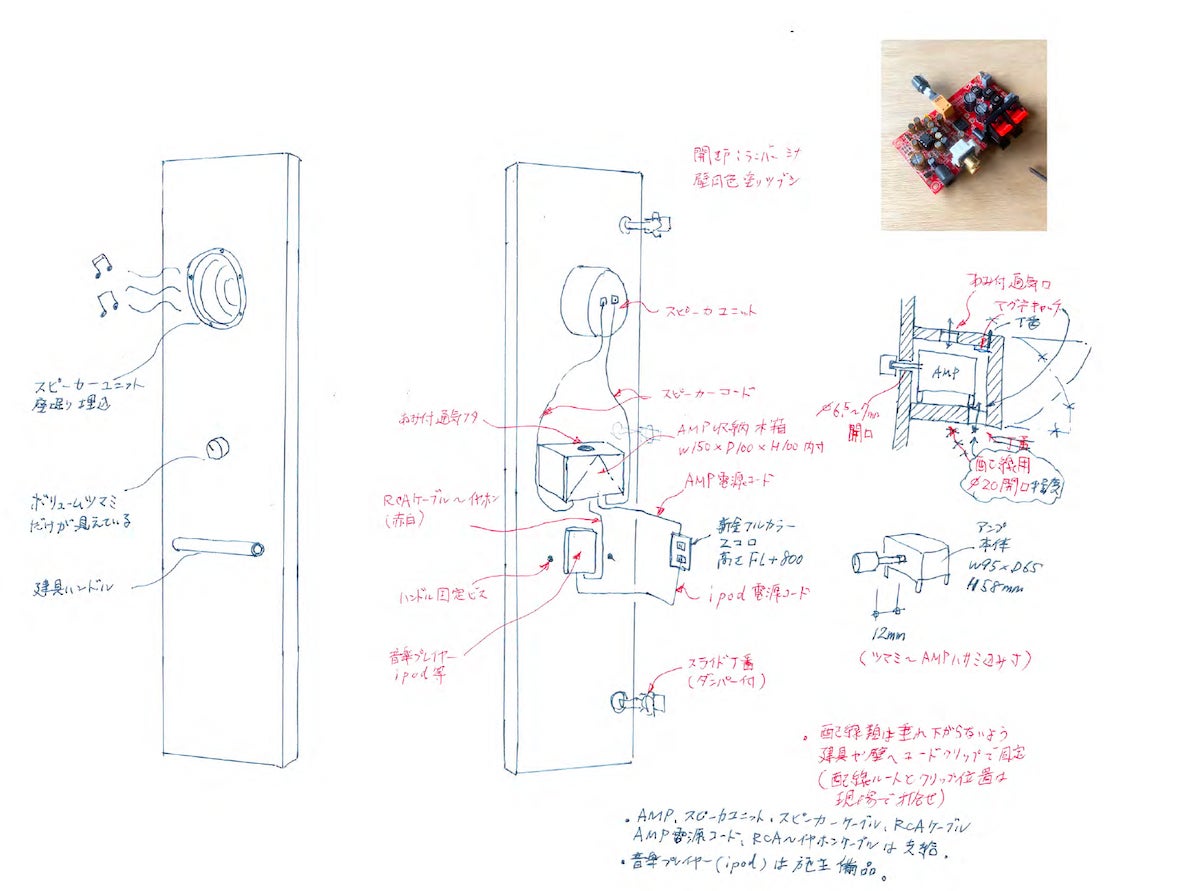 スピーカーユニット
座掘り埋込
ボリュームツマミ
だけが見えている
建具ハンドル
開き戸:ランバーコア
壁同色塗りツブシ
スピーカユニット
スピーカーコード
あみ付通気フタ
AMP収納木箱
W150×D100×H100内寸
AMP電源コード
RCAケーブル〜イヤホン
(赤白)
新金フルカラー
2コ口
高さFL+800
ipod電源コード
ハンドル固定ビス
音楽プレイヤー
ipod等
スライド丁番
(ダンパー付)
あみ付通気口
マグネキャッチ
丁番
AMP
φ6.5〜7mm
開口
丁番
配線用
φ20開口
アンプ
本体
W95×D65
H58mm
12mm
(ツマミ〜AMPハサミ込み寸)
・配線類は垂れ下がらないよう
建具や壁へコードクリップで固定
(配線ルートとクリップ位置は
現場で打合せ)
・AMP、スピーカユニット、スピーカーケーブル、RCAケーブル
AMP電源コード、RCA〜イヤホンケーブルは支給。
・音楽プレイヤー(ipod)は施主備品。